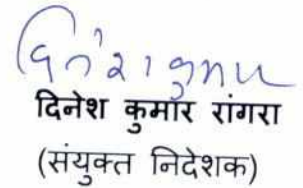 दिनेश कुमार रांगरा
(संयुक्त निदेशक)